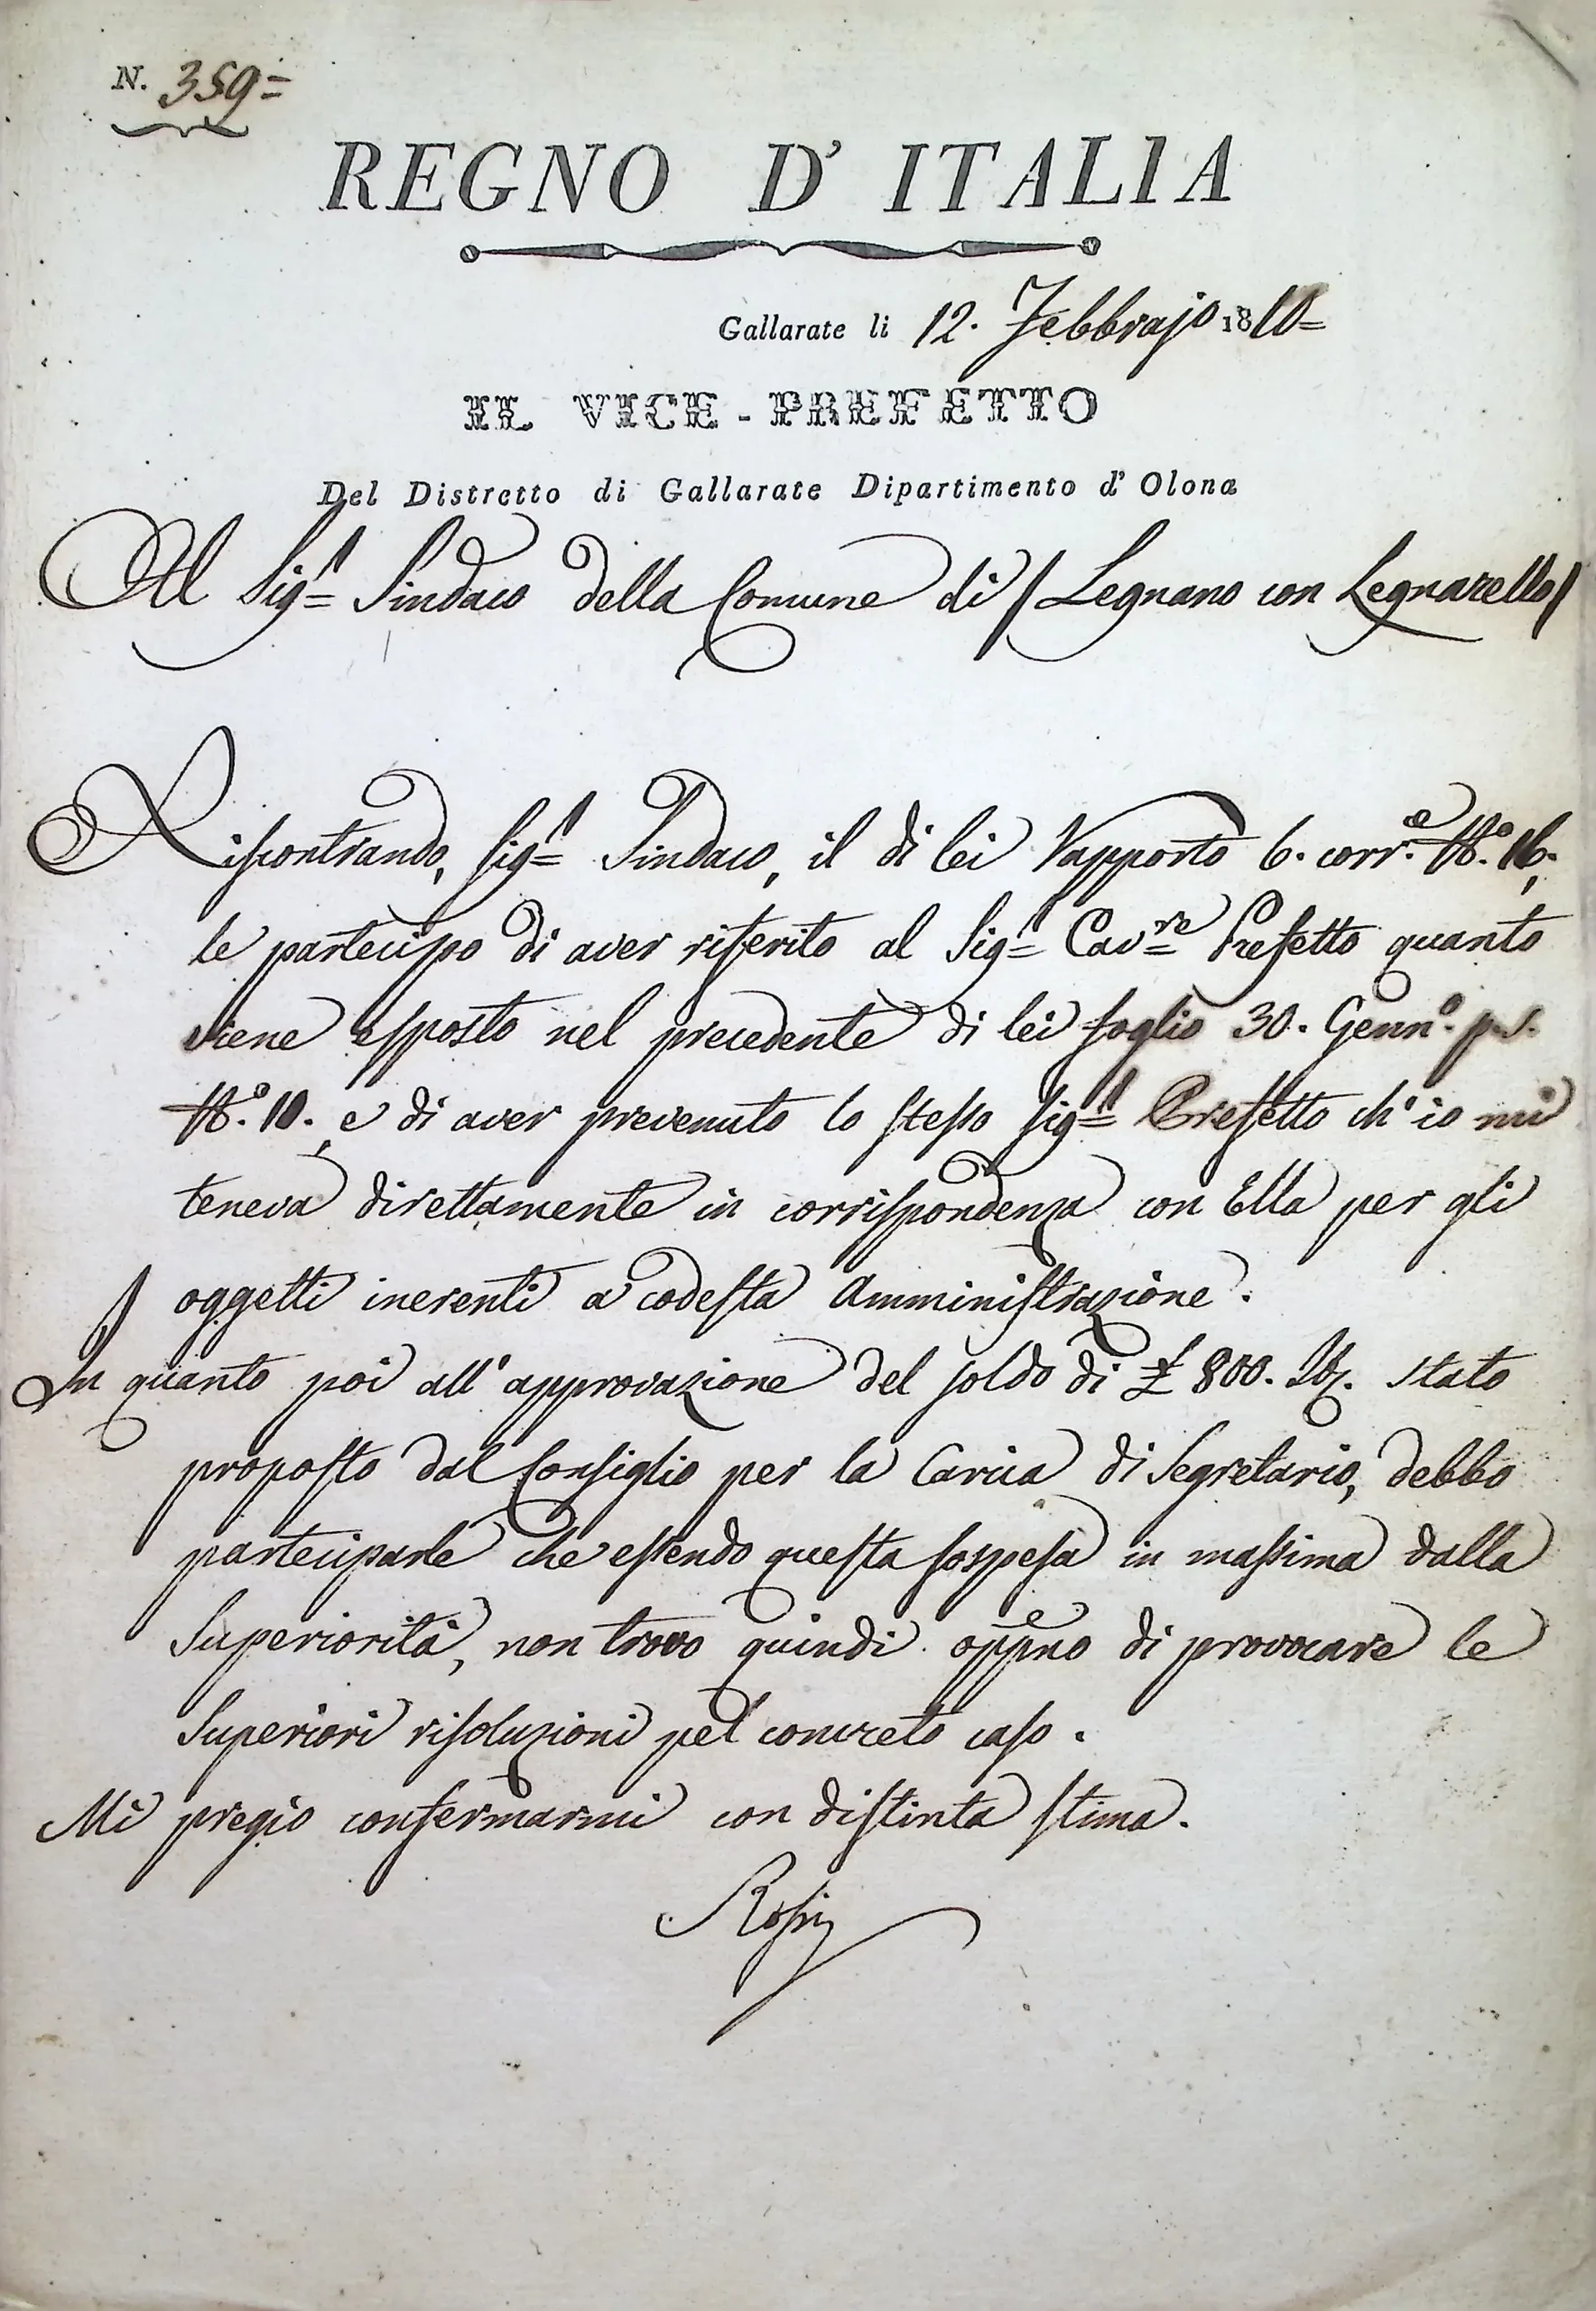 N. 359=
REGNO D' ITALIA
Gallarate li 12. Febbrajo 1810=
IL VICE-PREFETTO
Del Distretto di Gallarate Dipartimento d' Olona
Al Sig.r Sindaco della Comune di / Legnano con Legnarello /
Riscontrando, Sig.r Sindaco, il di lei Rapporto 6. corr.e N.o 16,
le partecipo di aver riferito al Sig.r Cav.re Prefetto quanto
viene esposto nel precedente di lei foglio 30. Genn.o p.s.
N.o 10. e di aver prevenuto lo stesso Sig.r Prefetto ch'io mi
teneva direttamente in corrispondenza con Ella per gli
oggetti inerenti a codesta Amministrazione.
In quanto poi all'approvazione del soldo di £ 800. stato
proposto dal Consiglio per la Carica di Segretario, debbo
parteciparle che essendo questa sospesa in massima dalla
Superiorità, non trovo quindi opp.no di provocare le
Superiori risoluzioni pel concreto caso.
Mi pregio confermarmi con distinta stima.
Rossi